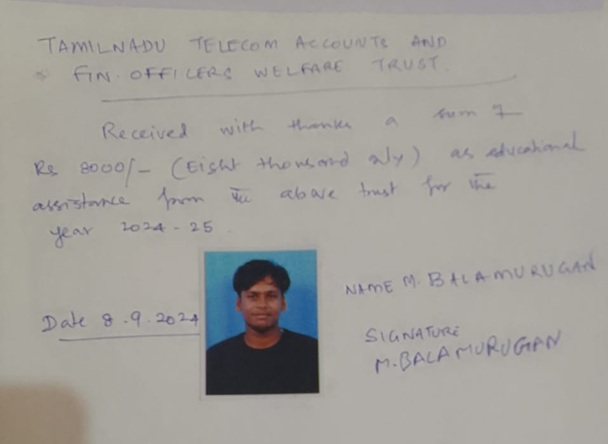 TAMILNADU TELECOM ACCOUNTS AND
FIN. OFFICERS WELFARE TRUST.
Received with thanks a sum of
Rs 8000/- (Eight thousand only) as educational
assistance from the above trust for the
year 2024-25.
Date 8.9.2024
NAME M. BALAMURUGAN
SIGNATURE
M.BALAMURUGAN